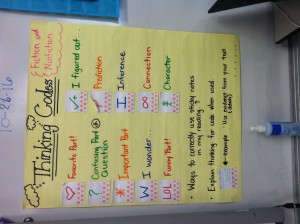 10-26-16
Fiction and
Nonfiction
Thinking Codes
♡ Favorite Part!
? Confusing Part or
Question
* Important Part
W I wonder...
LOL Funny Part!
✓ I figured out...
Prediction
I Inference
∞ Connection
Character
• Ways to correctly use sticky notes
in my reading?
• Explain thinking for code when used.
example
Use evidence from your text